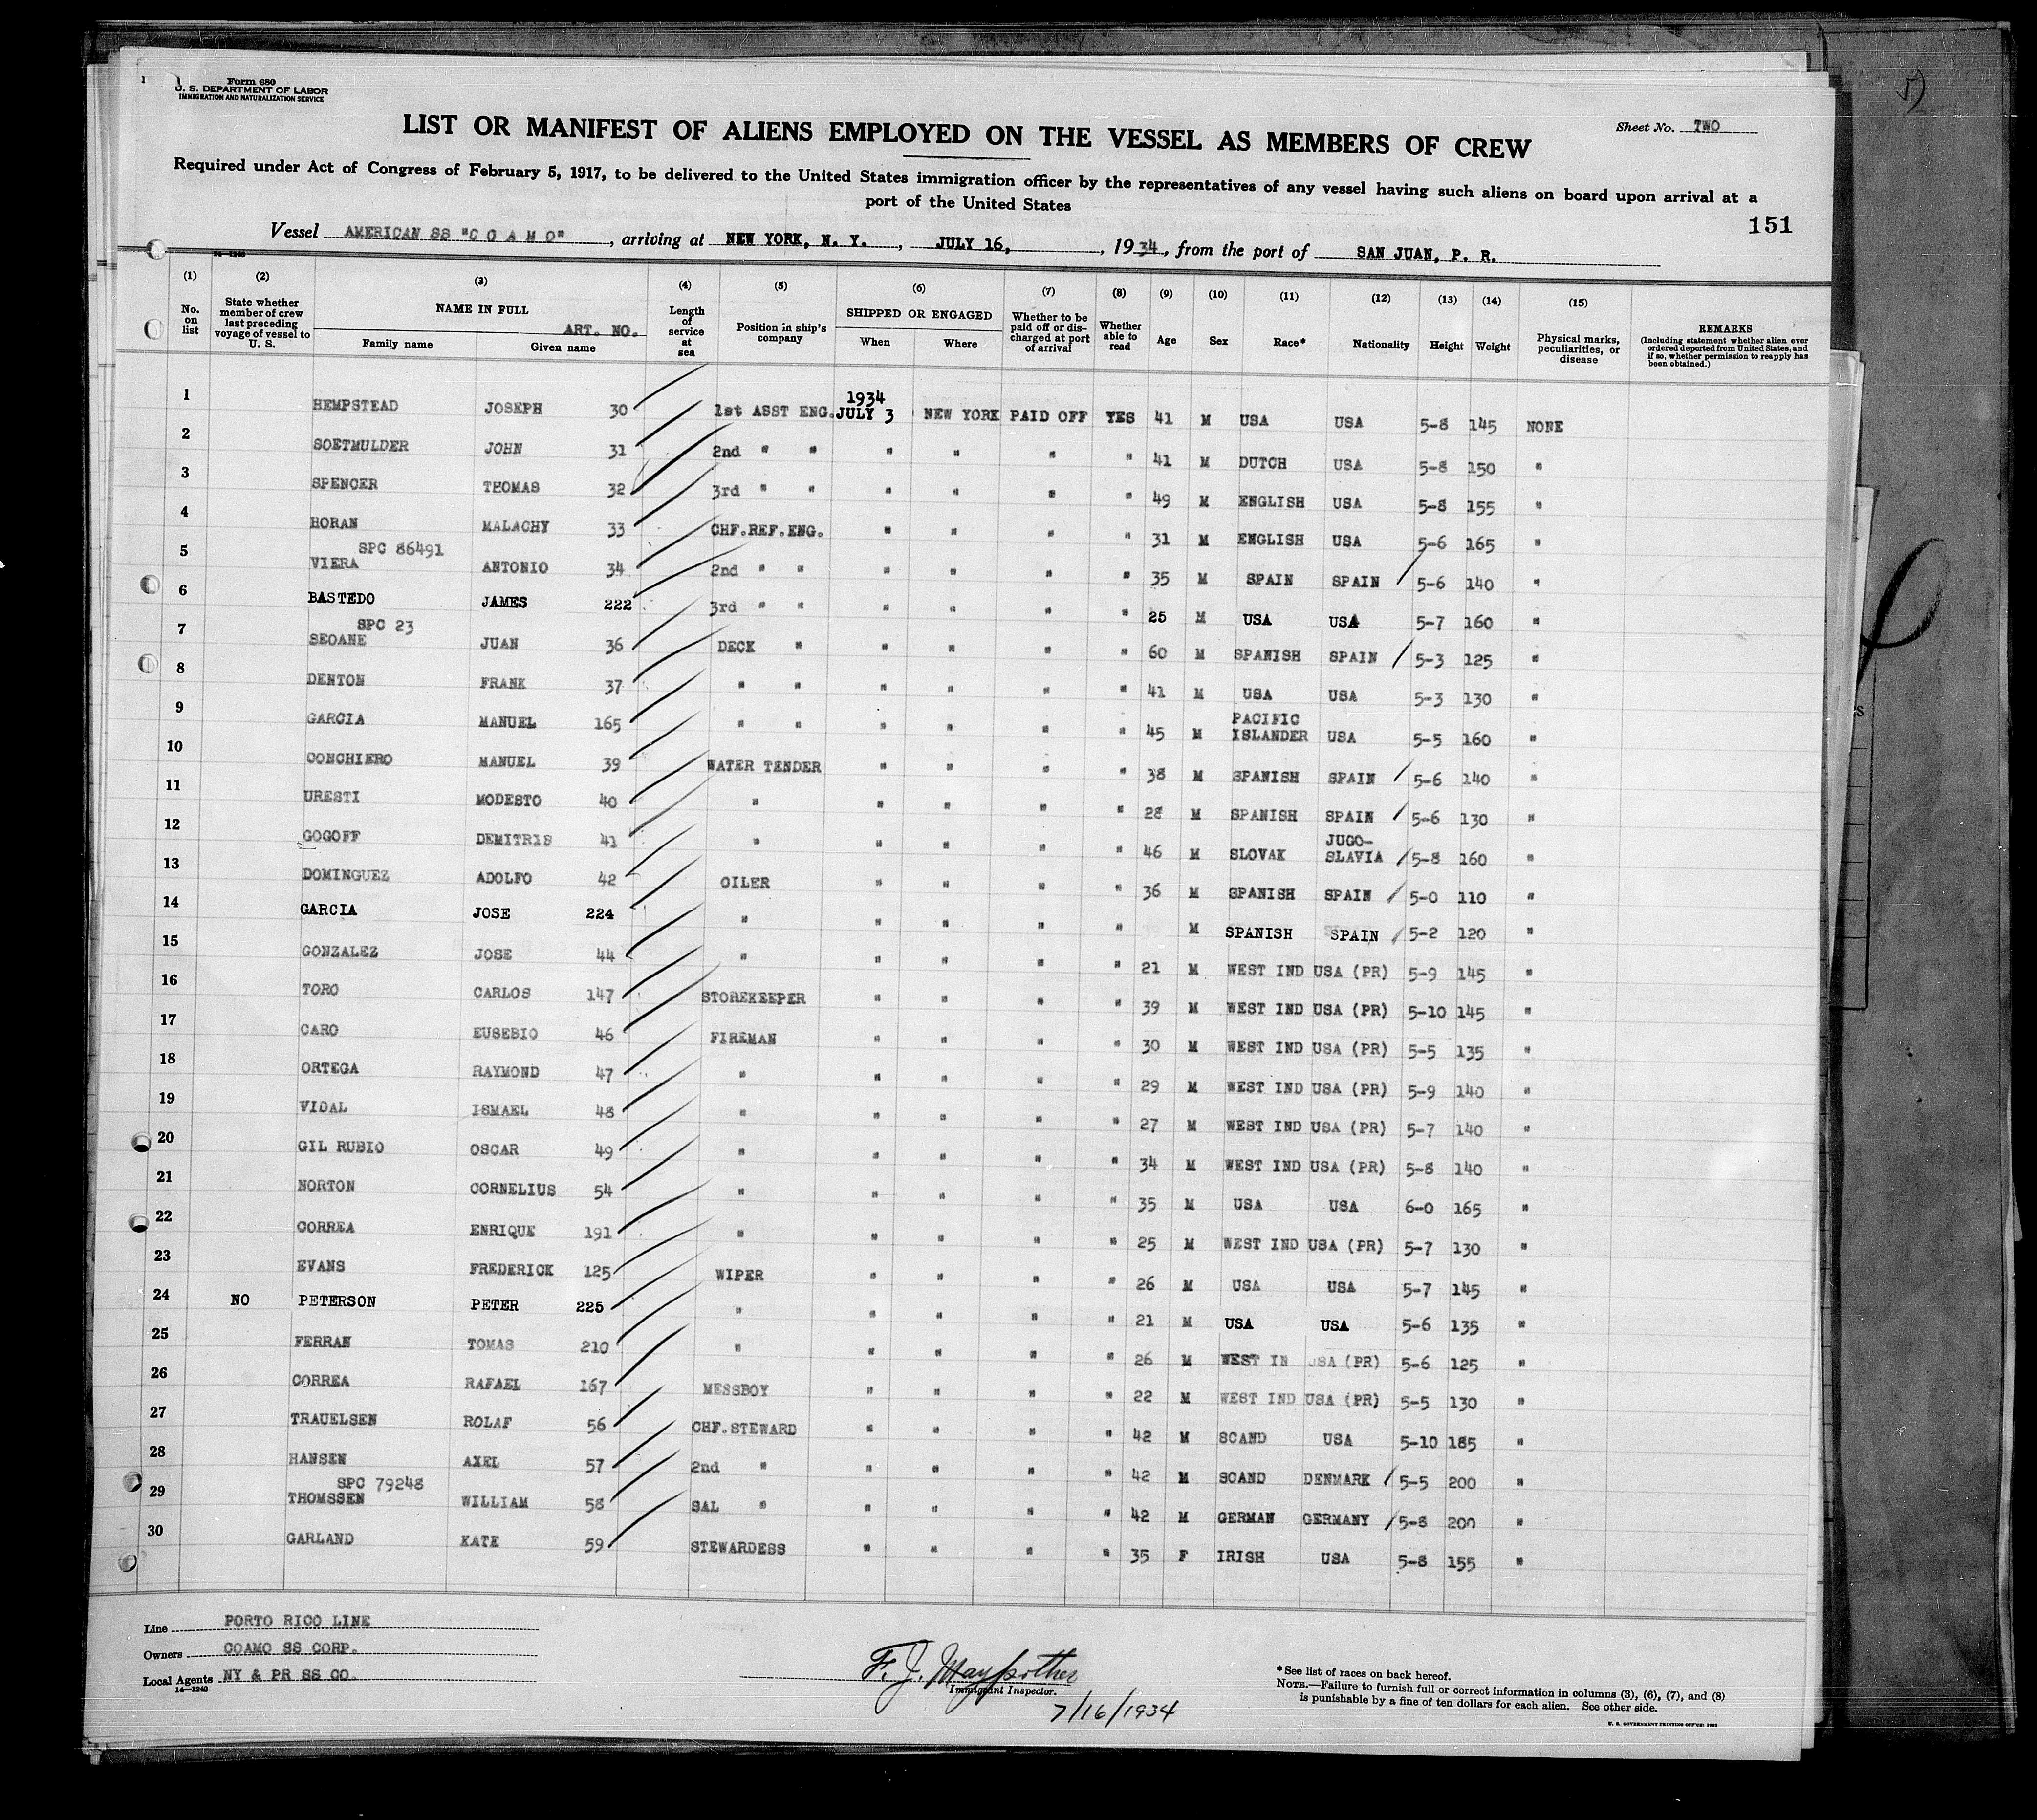 Form 680
U. S. DEPARTMENT OF LABOR
IMMIGRATION AND NATURALIZATION SERVICE
LIST OR MANIFEST OF ALIENS EMPLOYED ON THE VESSEL AS MEMBERS OF CREW
Sheet No. TWO
Required under Act of Congress of February 5, 1917, to be delivered to the United States immigration officer by the representatives of any vessel having such aliens on board upon arrival at a
port of the United States
151
Vessel AMERICAN SS "C O A M O", arriving at NEW YORK, N. Y., JULY 16, , 1934, from the port of SAN JUAN, P. R.
14-1240
(1) (2) (3) (4) (5) (6) (7) (8) (9) (10) (11) (12) (13) (14) (15)
No. on list State whether member of crew last preceding voyage of vessel to U. S. NAME IN FULL Family name Given name ART. NO. Length of service at sea Position in ship's company SHIPPED OR ENGAGED When Where Whether to be paid off or discharged at port of arrival Whether able to read Age Sex Race* Nationality Height Weight Physical marks, peculiarities, or disease REMARKS (Including statement whether alien ever ordered deported from United States, and if so, whether permission to reapply has been obtained.)
1934
1 HEMPSTEAD JOSEPH 30 1st ASST ENG. JULY 3 NEW YORK PAID OFF YES 41 M USA USA 5-8 145 NONE
2 SOETMULDER JOHN 31 2nd " " " " " " 41 M DUTCH USA 5-8 150 "
3 SPENCER THOMAS 32 3rd " " " " " " 49 M ENGLISH USA 5-8 155 "
4 HORAN MALACHY 33 CHF.REF.ENG. " " " " 31 M ENGLISH USA 5-6 165 "
SPC 86491
5 VIERA ANTONIO 34 2nd " " " " " " 35 M SPAIN SPAIN 5-6 140 "
6 BASTEDO JAMES 222 3rd " " " " " " 25 M USA USA 5-7 160 "
SPC 23
7 SEOANE JUAN 36 DECK " " " " " 60 M SPANISH SPAIN 5-3 125 "
8 DENTON FRANK 37 " " " " " " 41 M USA USA 5-3 130 "
9 GARCIA MANUEL 165 " " " " " " 45 M PACIFIC ISLANDER USA 5-5 160 "
10 CONCHIERO MANUEL 39 WATER TENDER " " " " 38 M SPANISH SPAIN 5-6 140 "
11 URESTI MODESTO 40 " " " " " 28 M SPANISH SPAIN 5-6 130 "
12 GOGOFF DEMITRIS 41 " " " " " 46 M SLOVAK JUGO-SLAVIA 5-8 160 "
13 DOMINGUEZ ADOLFO 42 OILER " " " " 36 M SPANISH SPAIN 5-0 110 "
14 GARCIA JOSE 224 " " " " " M SPANISH SPAIN 5-2 120 "
15 GONZALEZ JOSE 44 " " " " " 21 M WEST IND USA (PR) 5-9 145 "
16 TORO CARLOS 147 STOREKEEPER " " " " 39 M WEST IND USA (PR) 5-10 145 "
17 CARO EUSEBIO 46 FIREMAN " " " " 30 M WEST IND USA (PR) 5-5 135 "
18 ORTEGA RAYMOND 47 " " " " " 29 M WEST IND USA (PR) 5-9 140 "
19 VIDAL ISMAEL 48 " " " " " 27 M WEST IND USA (PR) 5-7 140 "
20 GIL RUBIO OSCAR 49 " " " " " 34 M WEST IND USA (PR) 5-8 140 "
21 NORTON CORNELIUS 54 " " " " " 35 M USA USA 6-0 165 "
22 CORREA ENRIQUE 191 " " " " " 25 M WEST IND USA (PR) 5-7 130 "
23 EVANS FREDERICK 125 WIPER " " " " 26 M USA USA 5-7 145 "
24 NO PETERSON PETER 225 " " " " " 21 M USA USA 5-6 135 "
25 FERRAN TOMAS 210 " " " " " 26 M WEST IN USA (PR) 5-6 125 "
26 CORREA RAFAEL 167 MESSBOY " " " " 22 M WEST IND USA (PR) 5-5 130 "
27 TRAUELSEN ROLAF 56 CHF.STEWARD " " " " 42 M SCAND USA 5-10 185 "
28 HANSEN AXEL 57 2nd " " " " " 42 M SCAND DENMARK 5-5 200 "
SPC 79248
29 THOMSSEN WILLIAM 58 SAL " " " " " 42 M GERMAN GERMANY 5-8 200 "
30 GARLAND KATE 59 STEWARDESS " " " " 35 F IRISH USA 5-8 155 "
Line PORTO RICO LINE
Owners COAMO SS CORP.
Local Agents NY & PR SS CO.
14-1240
F. J. Mayforther
Immigrant Inspector.
7/16/1934
*See list of races on back hereof.
NOTE.—Failure to furnish full or correct information in columns (3), (6), (7), and (8)
is punishable by a fine of ten dollars for each alien. See other side.
U. S. GOVERNMENT PRINTING OFFICE: